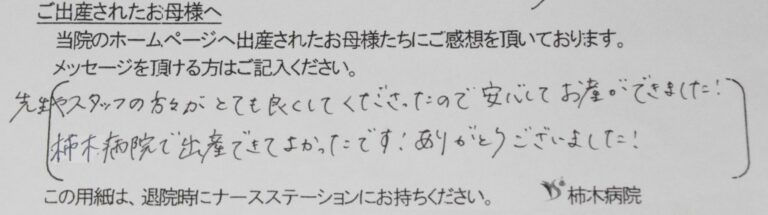 ご出産されたお母様へ
当院のホームページへ出産されたお母様たちにご感想を頂いております。
メッセージを頂ける方はご記入ください。
先生やスタッフの方々がとても良くしてくださったので安心してお産ができました!
柿木病院で出産できてよかったです!ありがとうございました!
この用紙は、退院時にナースステーションにお持ちください。 柿木病院